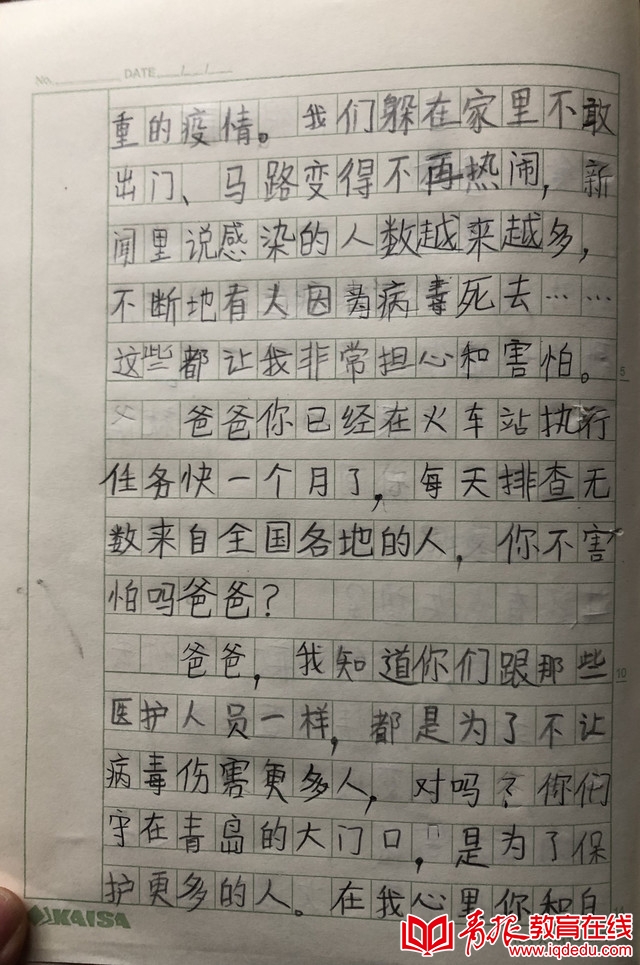 No.
DATE / /
重的疫情。我们躲在家里不敢
出门、马路变得不再热闹，新
闻里说感染的人数越来越多，
不断地有人因为病毒死去……
这些都让我非常担心和害怕。
5
爸爸你已经在火车站执行
任务快一个月了，每天排查无
数来自全国各地的人，你不害
怕吗爸爸？
爸爸，我知道你们跟那些
10
医护人员一样，都是为了不让
病毒伤害更多人，对吗？你们
守在青岛的大门口，是为了保
护更多的人。在我心里你和白
KAISA
青报教育在线
www.iqdedu.com